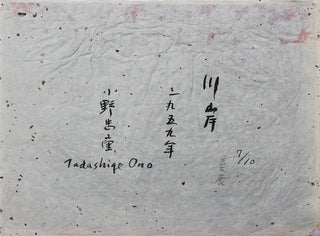 川岸
一九五九年
小野忠重
Tadashige Ono
7/10